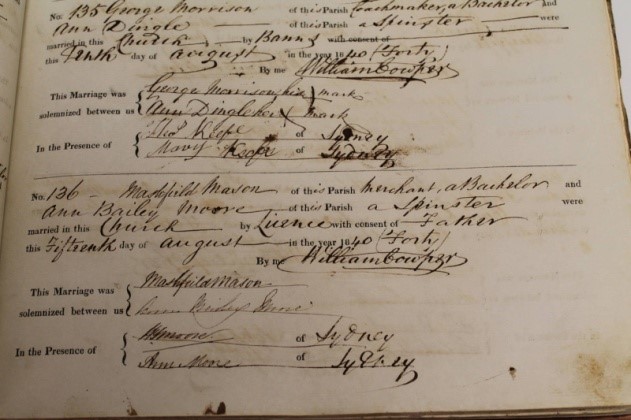 No. 135 George Morrison of this Parish Coachmaker, a Bachelor
Ann Dingle of this Parish a Spinster were
married in this Church by Banns with consent of
this Tenth day of august in the year 1840 (Forty)
By me William Cowper
This Marriage was George Morrison his X mark
solemnized between us Ann Dingle her X mark
of Sydney
In the Presence of Mary of Sydney
No. 136 Mashfield Mason of this Parish merchant, a Bachelor and
Ann Bailey Moore of this Parish a Spinster were
married in this Church by Licence with consent of Father
this Fifteenth day of august in the year 1840 (Forty)
By me William Cowper
This Marriage was Mashfield Mason
solemnized between us Ann Bailey Moore
Moore of Sydney
In the Presence of Ann Moore of Sydney